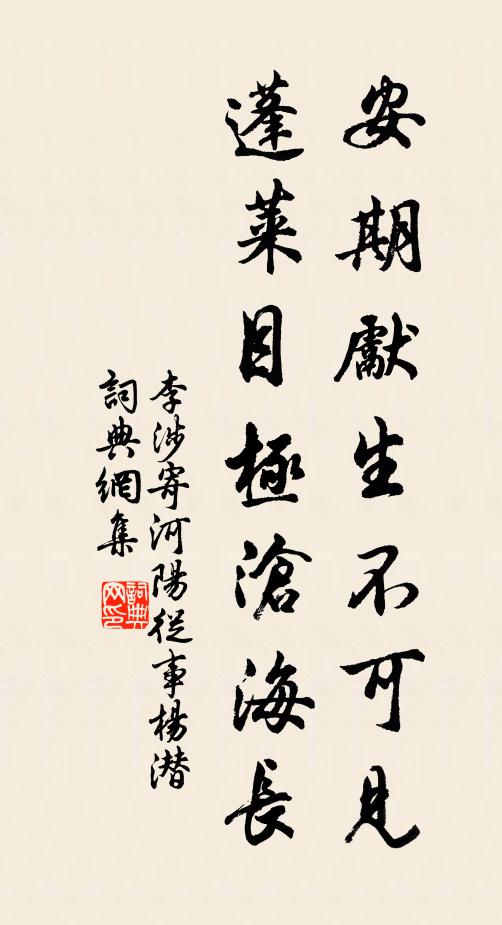 安期獻生不可見
蓬萊目極滄海長
李涉寄河陽從事楊潛
詞典網集
詞典
网印